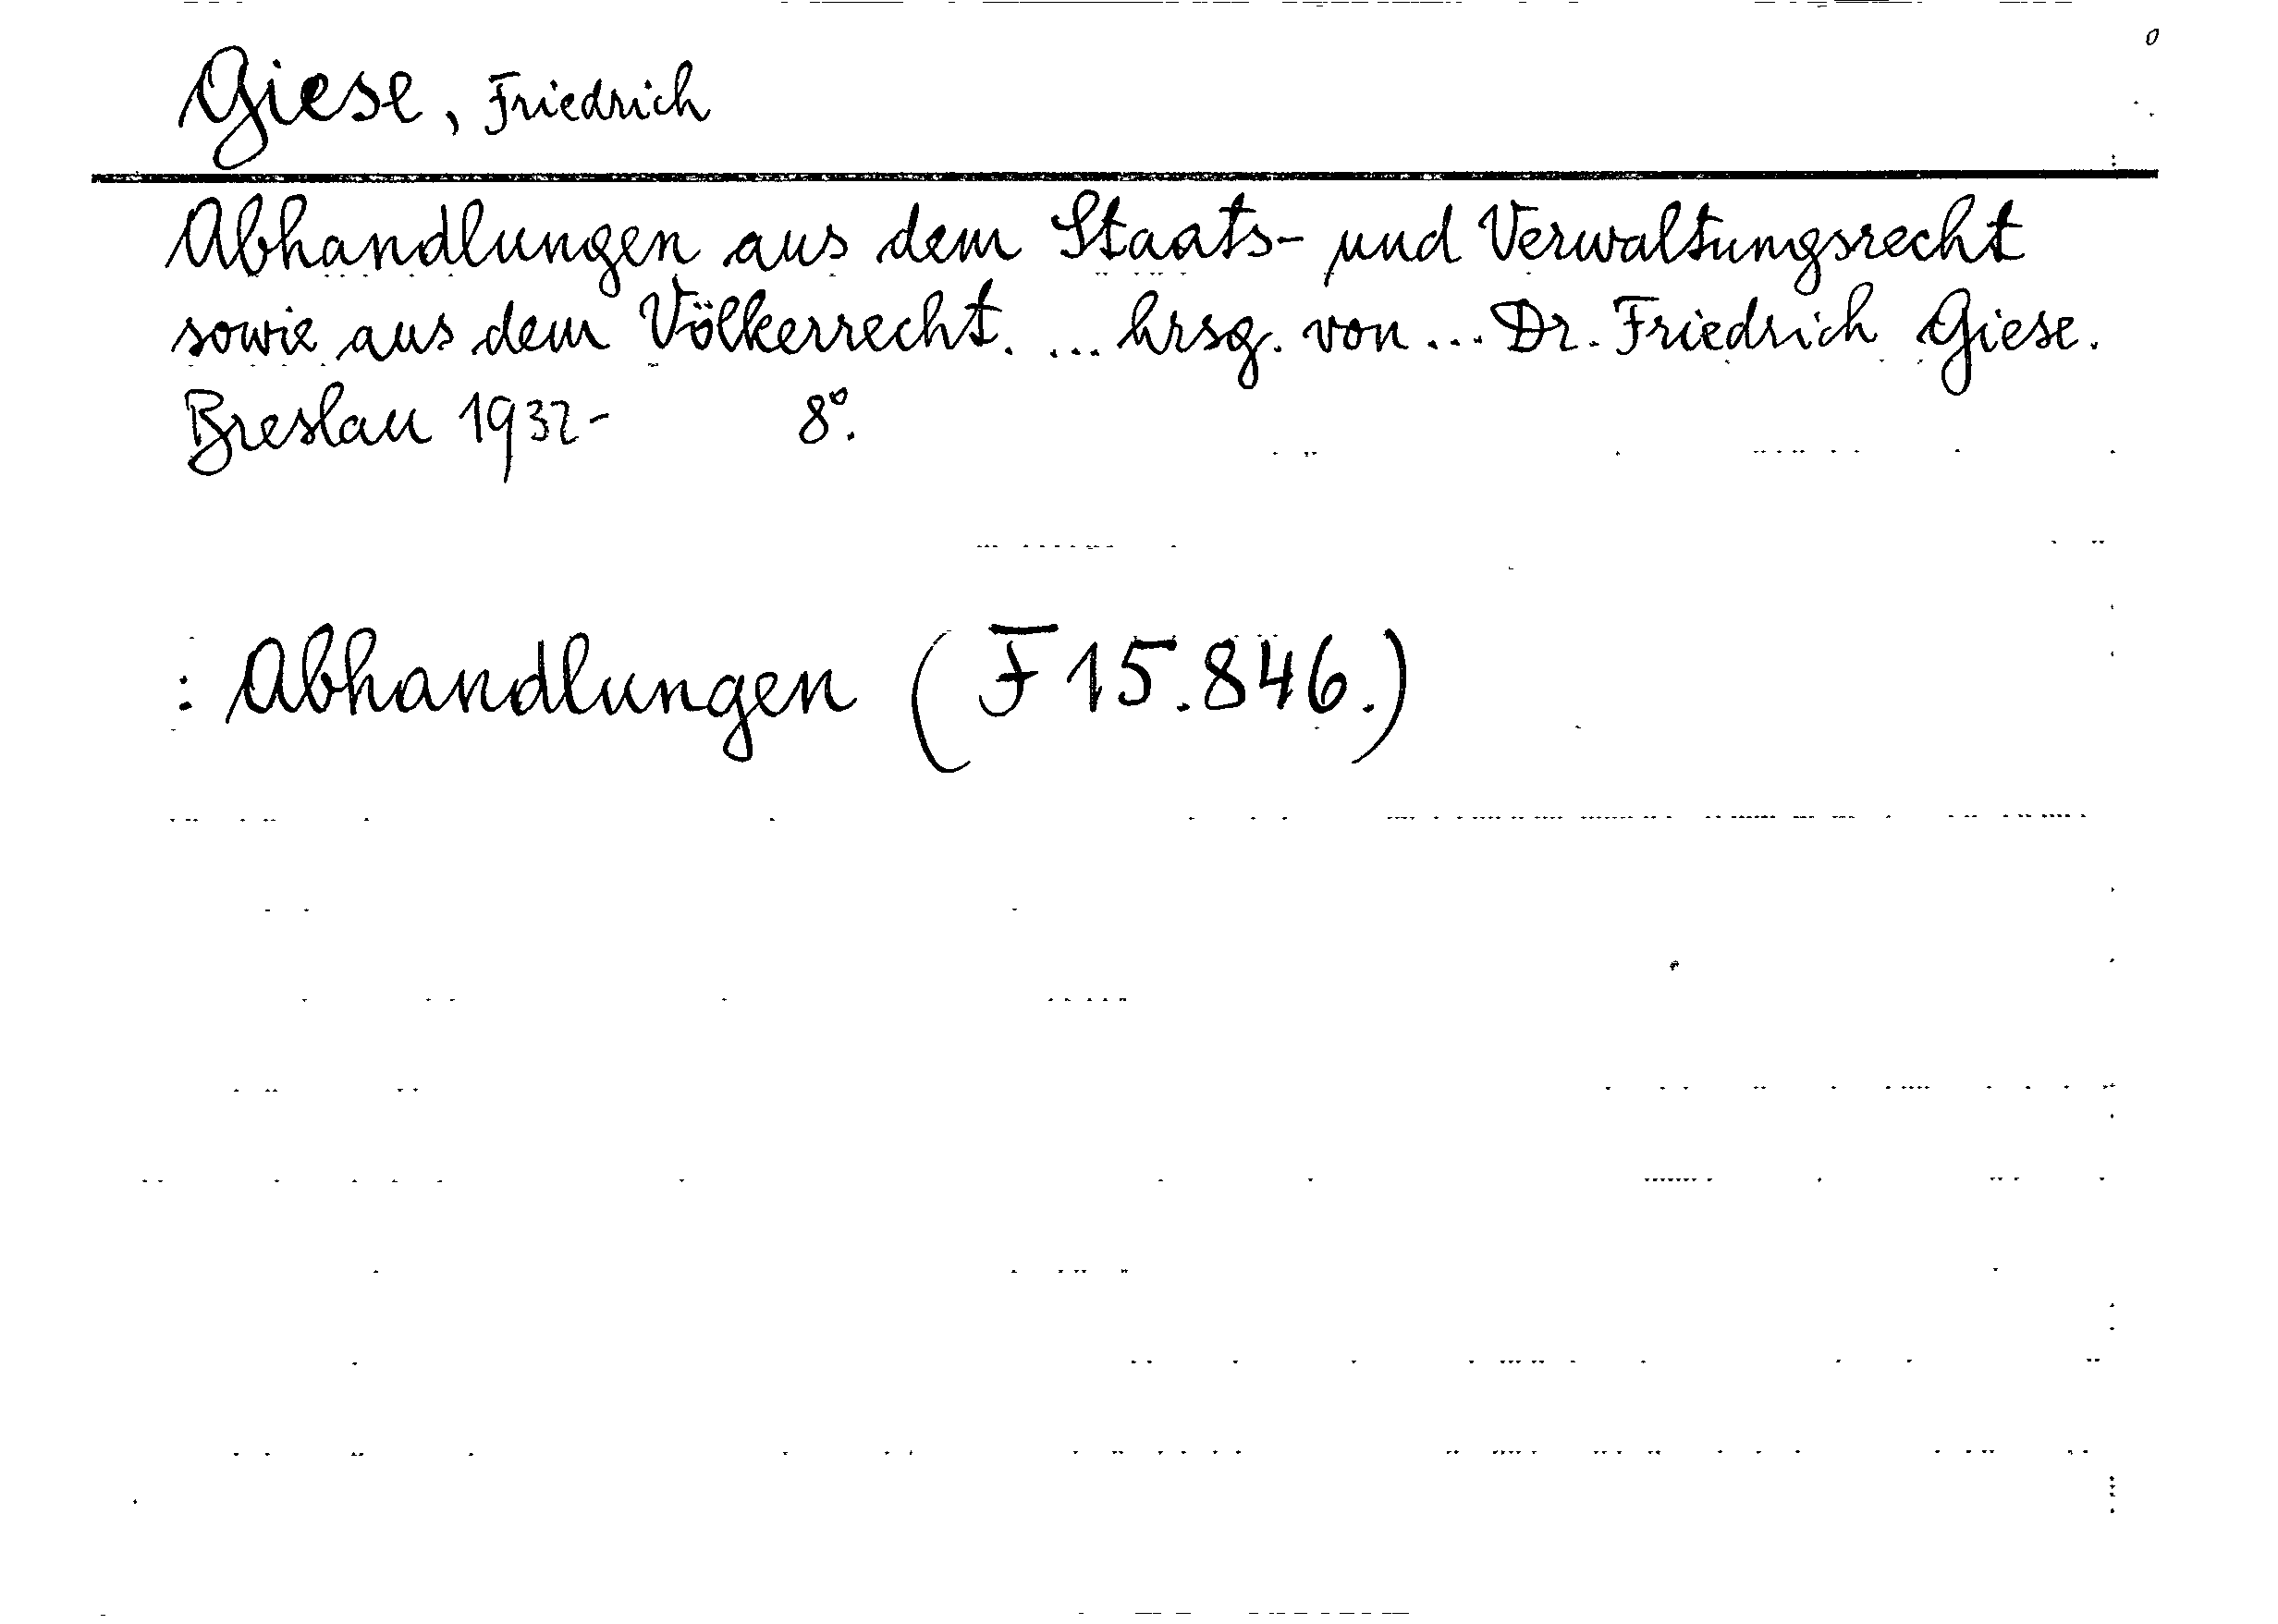 Giese, Friedrich
Abhandlungen aus dem Staats- und Verwaltungsrecht
sowie aus dem Völkerrecht. ... hrsg. von ... Dr. Friedrich Giese.
Breslau 1932- 8°.
: Abhandlungen (F 15.846.)